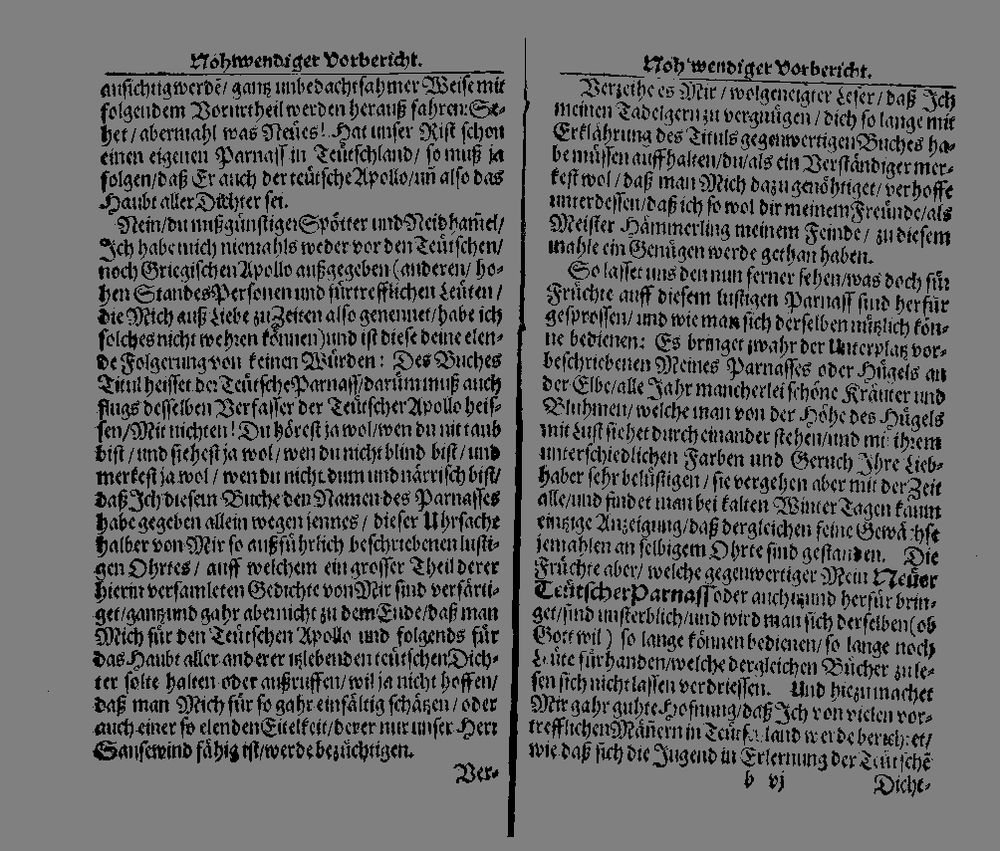 Nohtwendiger Vorbericht.
ansichtig werdẽ/ gantz unbedachtsahmer Weise mit
folgendem Vorurtheil werden herauß fahren: Se-
het/ abermahl was Neües! Hat unser Rist schon
einen eigenen Parnass in Teütschland/ so muß ja
folgen/ daß Er auch der teütsche Apollo/ uñ also das
Haubt aller Dichter sei.
Nein/ du mißgünstiger Spötter und Neidham̃el/
Ich habe mich niemahls weder vor den Teütschen/
noch Griegischen Apollo außgegeben (anderen/ ho-
hen Standes Personen und fürtrefflichen Leüten/
die Mich auß Liebe zu Zeiten also genennet/ habe ich
solches nicht wehren können) und ist diese deine elen-
de Folgerung von keinen Würden: Des Buches
Titul heisset der Teütsche Parnass/ darüm muß auch
flugs desselben Verfasser der Teütscher Apollo heis-
sen/ Mit nichten! Du hörest ja wol/ wen du nit taub
bist/ und siehest ja wol/ wen du nicht blind bist/ und
merkest ja wol/ wen du nicht dum und närrisch bist/
daß Ich diesem Buche den Namen des Parnasses
habe gegeben allein wegen jennes/ dieser Uhrsache
halber von Mir so außführlich beschriebenen lusti-
gen Ohrtes/ auff welchem ein grosser Theil derer
hierin versamleten Gedichte von Mir sind verfärti-
get/ gantz und gahr aber nicht zu dem Ende/ daß man
Mich für den Teütschen Apollo und folgends für
das Haubt aller anderer itzlebenden teütschen Dich-
ter solte halten oder außruffen/ wil ja nicht hoffen/
daß man Mich für so gahr einfältig schätzen/ oder
auch einer so elenden Eitelkeit/ derer nur unser Herr
Sausewind fähig ist/ werde bezüchtigen.
Ver-
Nohtwendiger Vorbericht.
Verzeihe es Mir/ wolgeneigter Leser/ daß Ich
meinen Tadelgern zu vergnügen/ dich so lange mit
Erklährung des Tituls gegenwertigen Buches ha-
be müssen auffhalten/ du/ als ein Verständiger mer-
kest wol/ daß man Mich dazu genöhtiget/ verhoffe
unterdessen/ daß ich so wol dir meinem Freünde/ als
Meister Hämmerling meinem Feinde/ zu diesem
mahle ein Genügen werde gethan haben.
So lasset uns den nun ferner sehen/ was doch für
Früchte auff diesem lustigen Parnass sind herfür
gesprossen/ und wie man sich derselben nützlich kön-
ne bedienen: Es bringet zwahr der Unterplatz vor-
beschriebenen Meines Parnasses oder Hügels an
der Elbe/ alle Jahr mancherlei schöne Kräuter und
Bluhmen/ welche man von der Höhe des Hügels
mit Lust siehet durch einander stehen/ und mit ihrem
unterschiedlichen Farben und Geruch Ihre Lieb-
haber sehr belüstigen/ sie vergehen aber mit der Zeit
alle/ und findet man bei kalten Winter Tagen kaum
eintzige Anzeigung/ daß dergleichen feine Gewächse
jemahlen an selbigem Ohrte sind gestanden. Die
Früchte aber/ welche gegenwertiger Mein Neüer
Teütscher Parnass oder auch itzund herfür brin-
get/ sind unsterblich/ und wird man sich derselben (ob
Gott wil) so lange können bedienen/ so lange noch
Leüte fürhanden/ welche dergleichen Bücher zu le-
sen sich nicht lassen verdriessen. Und hiezu machet
Mir gahr guhte Hofnung/ daß Ich von vielen vor-
trefflichen Mäñern in Teütschland werde berichtet/
wie daß sich die Jugend in Erlernung der Teütschẽ
b vj Dicht-